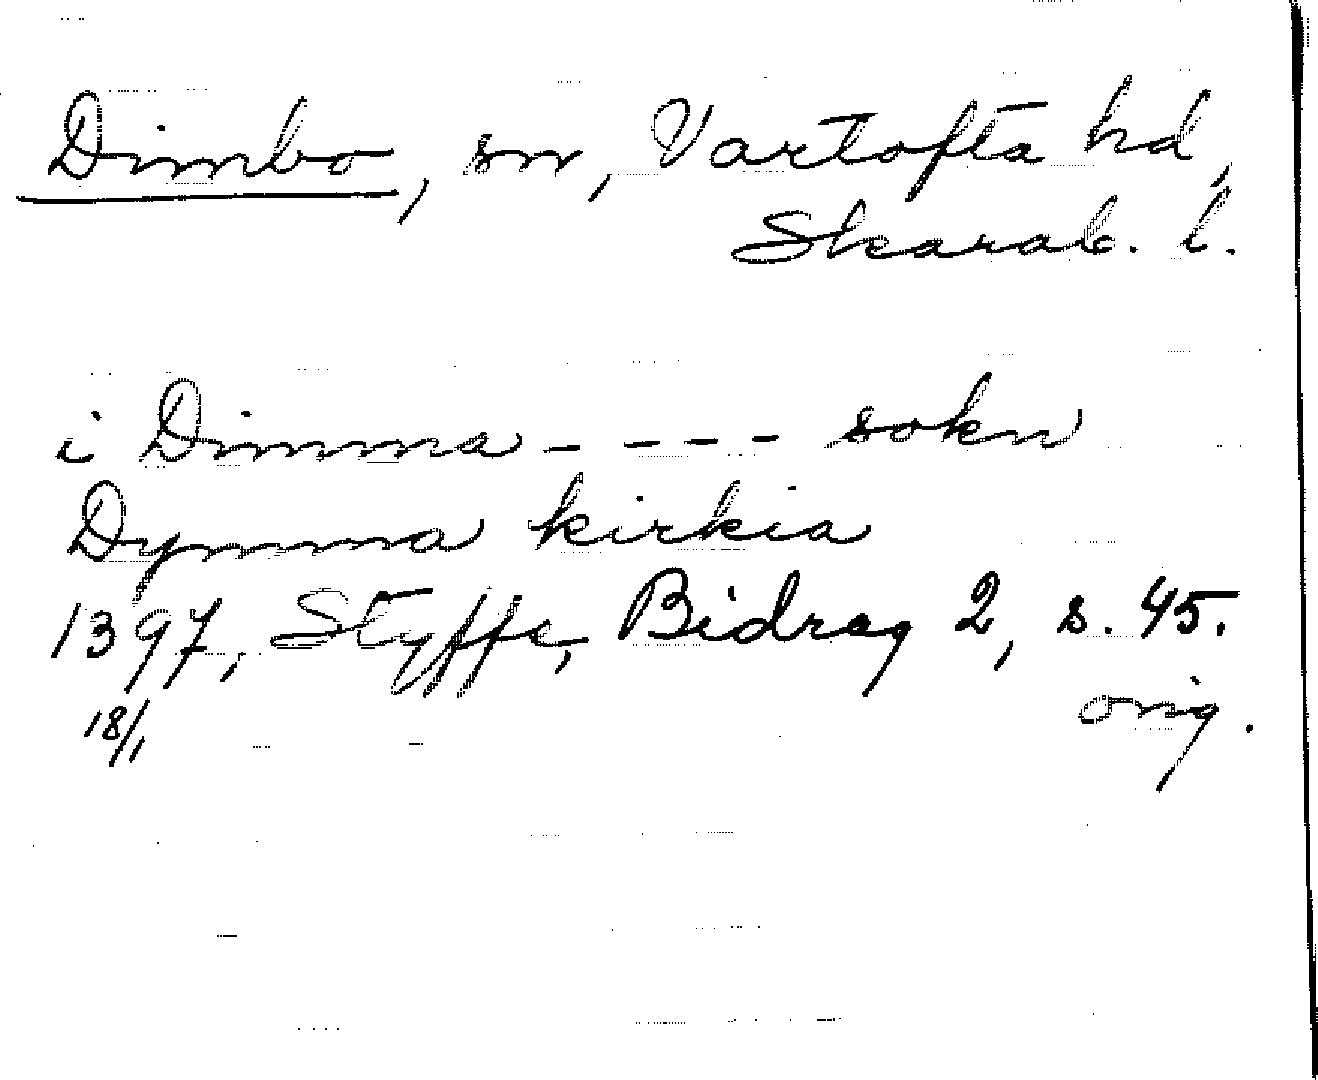 Dimbo, sn, Vartofta hd,
Skarab. l.
i Dimma - - - - sokn
Dymma kirkia
1397, Styffe, Bidrag 2, s. 45.
orig.
18/1